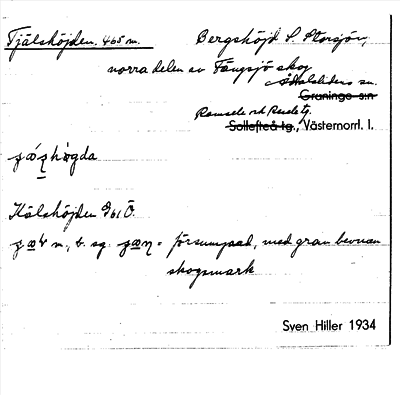 Tjälshöjden. 465 m. Bergshöjd S. Storsjön,
norra delen av Fängsjö skog
Ådalslidens sn.
Graninge s:n
Ramsele och Resele tg.
Sollefteå tg., Västernorrl. l.
höɡda
Kälshöjden 961 Ö.
m., b. sg. = försumpad, med gran bevuxen
skogsmark
Sven Hiller 1934